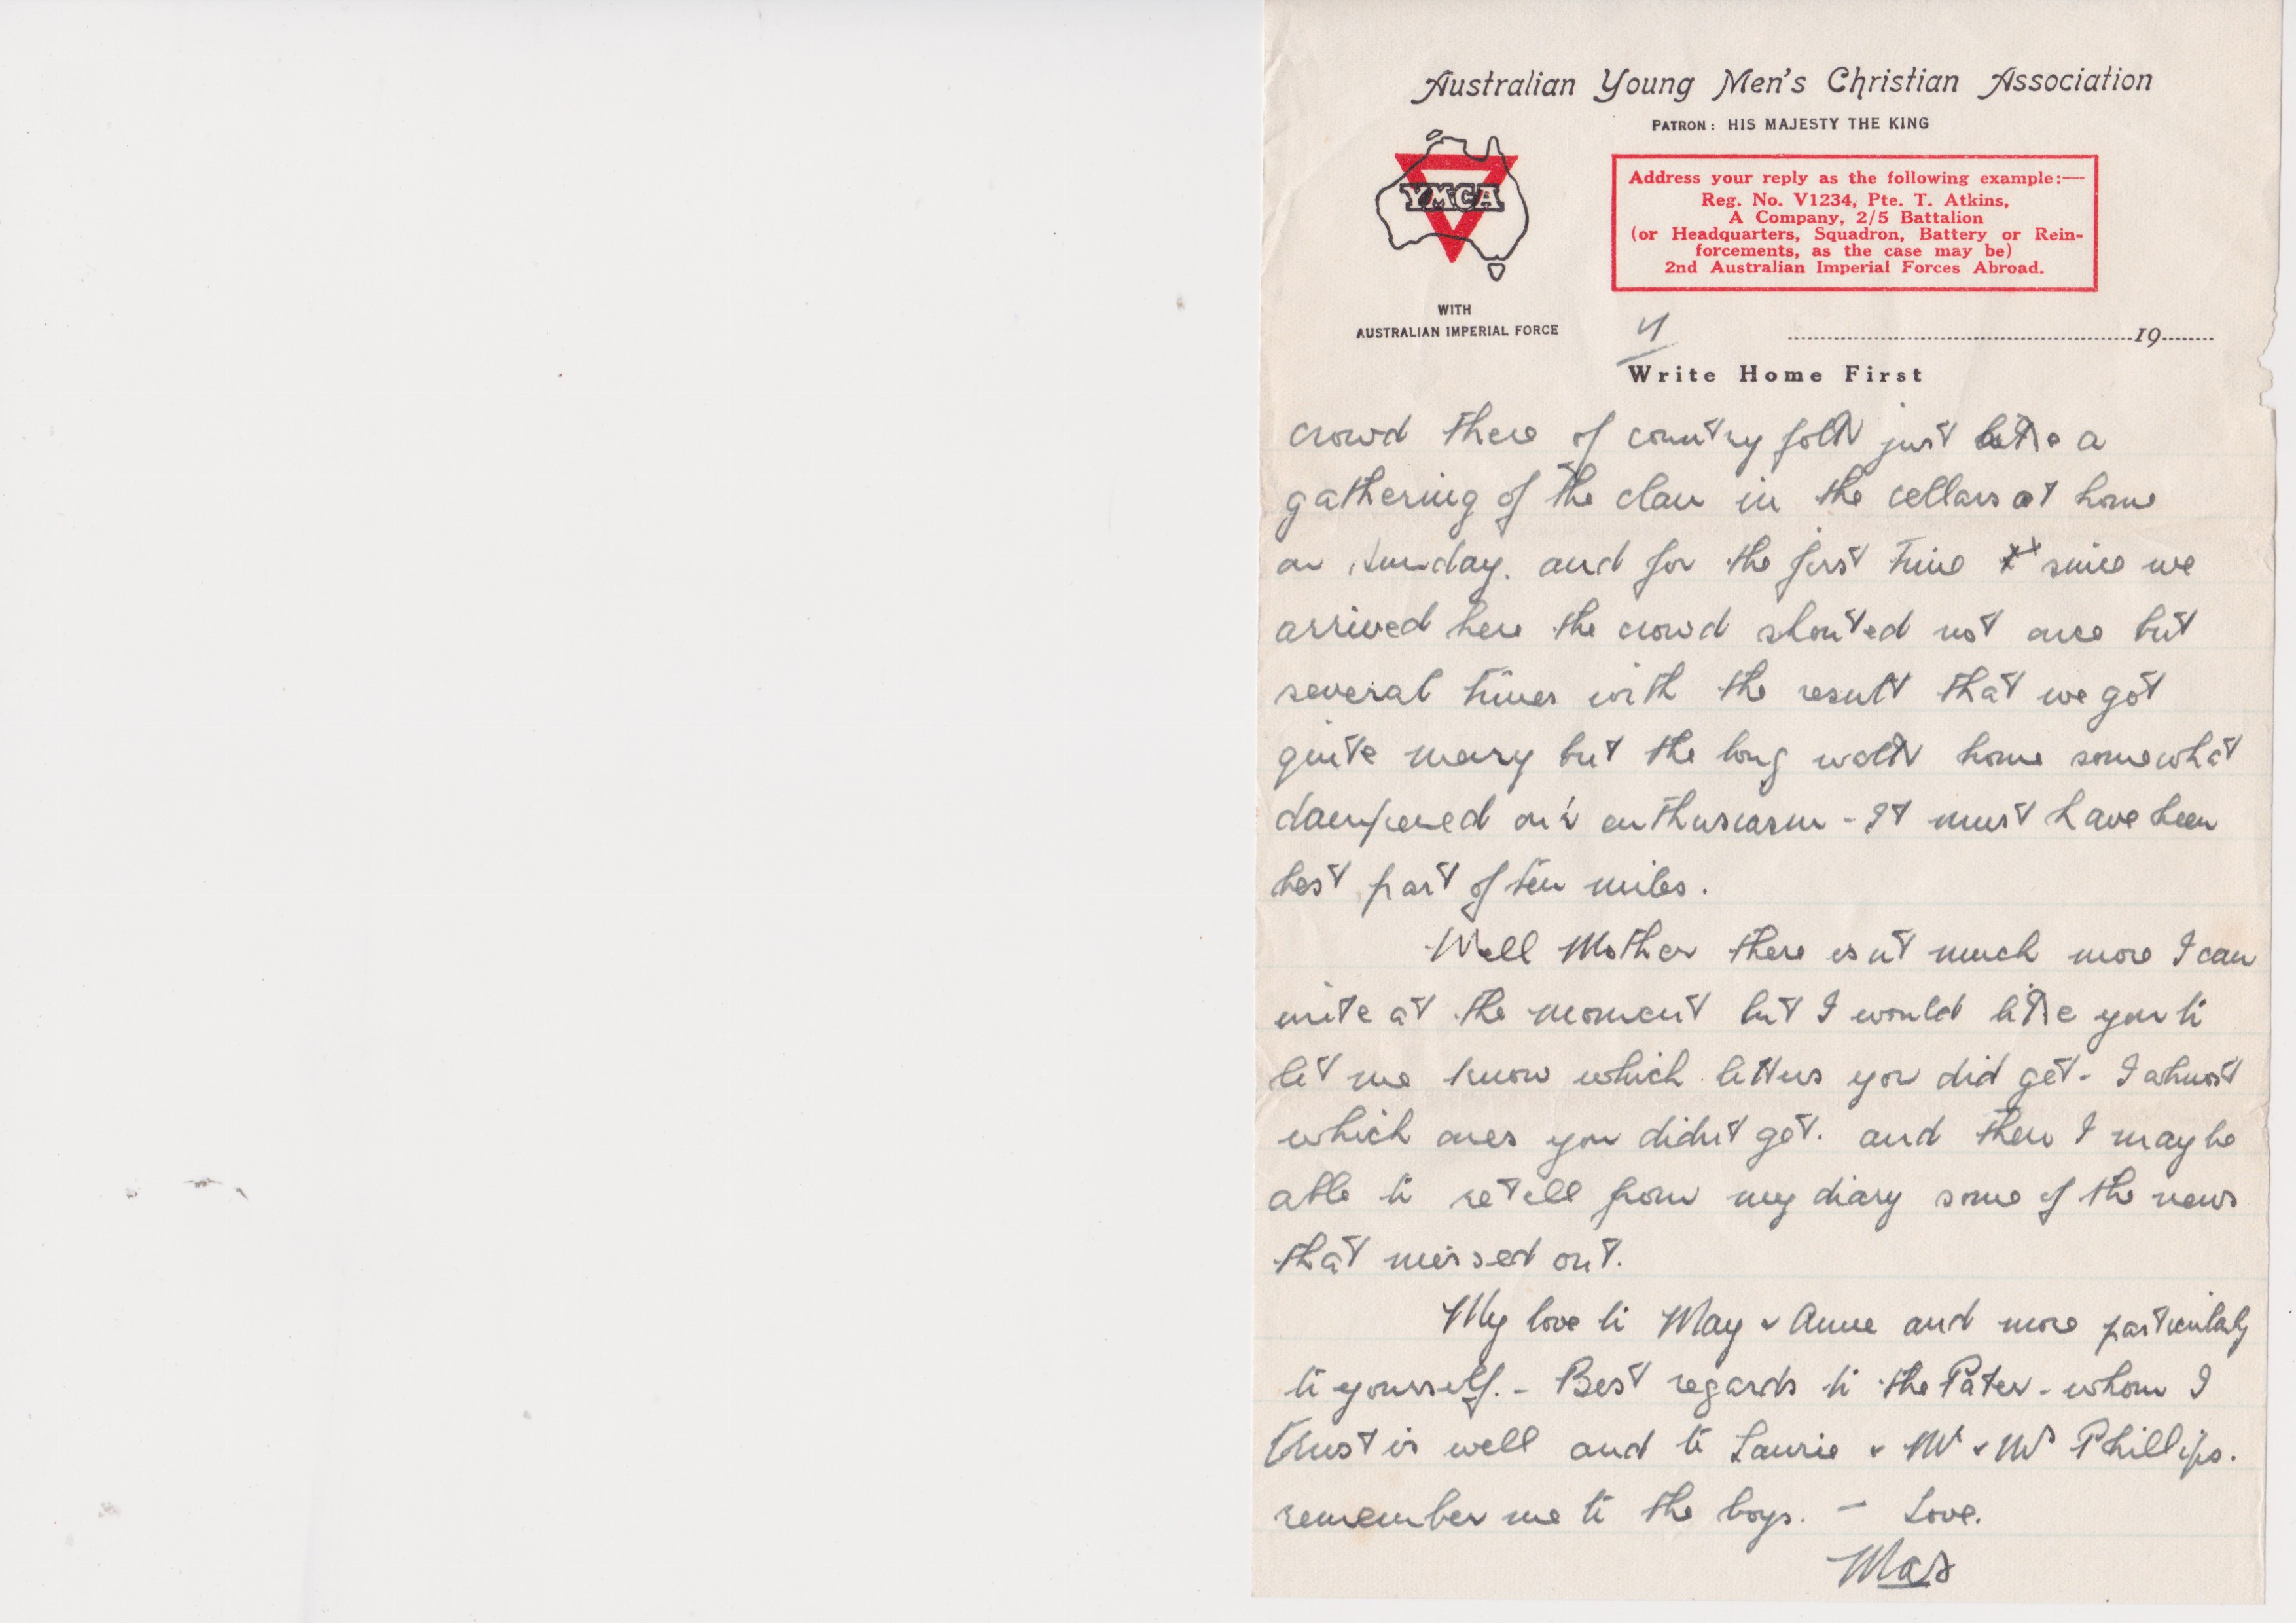 Australian Young Men's Christian Association
PATRON: HIS MAJESTY THE KING
YMCA
WITH
AUSTRALIAN IMPERIAL FORCE
Address your reply as the following example:—
Reg. No. V1234, Pte. T. Atkins,
A Company, 2/5 Battalion
(or Headquarters, Squadron, Battery or Rein-
forcements, as the case may be)
2nd Australian Imperial Forces Abroad.
19
Write Home First
crowd there of country folk just like a
gathering of the clan in the cellars at home
on Sunday. and for the first time since we
arrived here the crowd shouted not once but
several times with the result that we got
quite merry but the long walk home somewhat
dampened our enthusiasm - It must have been
best part of ten miles.
Well Mother there isn't much more I can
write at the moment but I would like you to
let me know which letters you did get - I
which ones you didn't get. and then I may be
able to retell from my diary some of the news
that missed out.
My love to May & Anne and more particularly
to yourself. - Best regards to the Pater - whom I
trust is well and to Laurie & Mr & Mrs Phillips.
remember me to the boys. - Love.